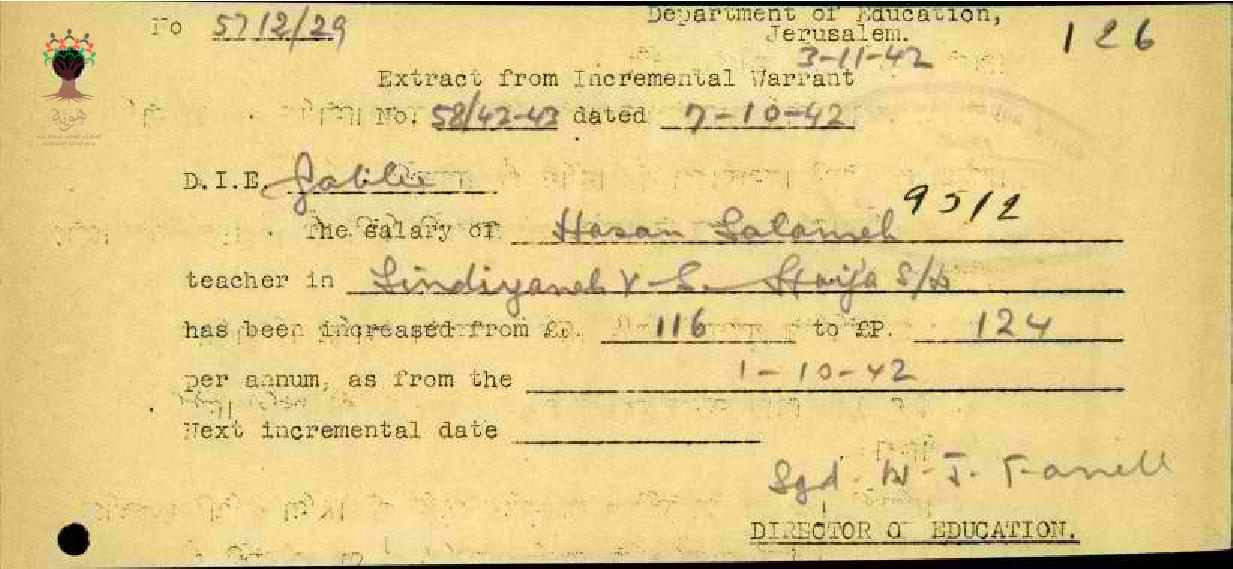 No 5712/29
Department of Education,
Jerusalem.
126
3-11-42
Extract from Incremental Warrant
No. 58/42-43 dated 7-10-42
هوية
D.I.E. Galilee
9512
The salary of Hasan Salameh
teacher in Sindiyaneh V.S. Haifa S/D
has been increased from £P. 116 to £P. 124
per annum, as from the 1-10-42
Next incremental date
Sgd. W. J. Farrell
DIRECTOR OF EDUCATION.